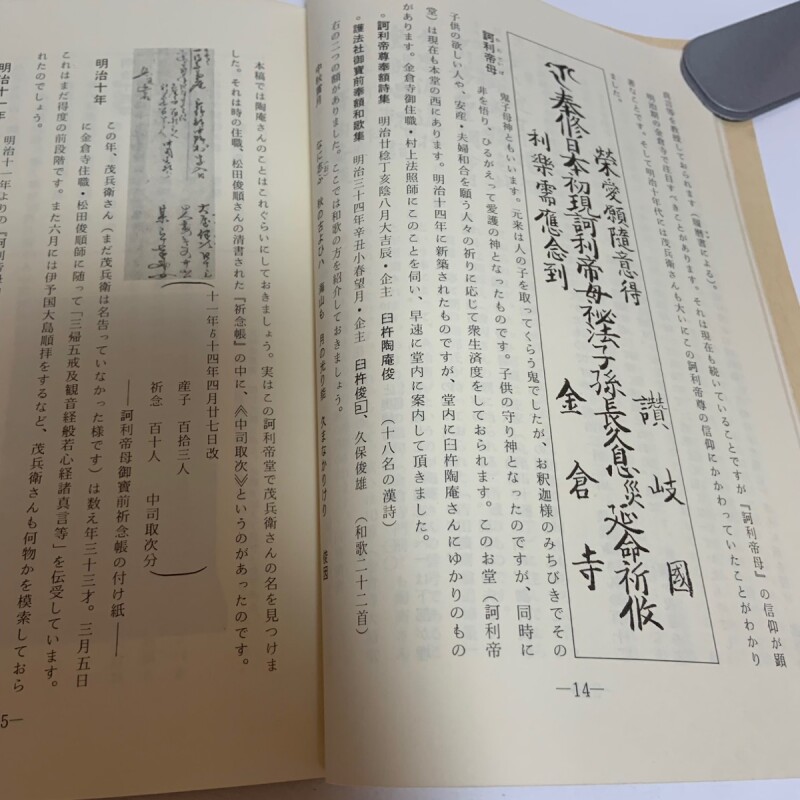 商習等を教授しておられます（履歴書による）。
明治期の金倉寺で注目すべきことがあります。それは現在も続いていることですが『訶利帝母』の信仰が顕
著なことです。そして明治十年代には茂兵衛さんも大いにこの訶利帝尊の信仰にかかわっていたことがわかり
ました。
栄愛願隨意得
奉修日本初現訶利帝母祕法子孫長久息災延命祈攸
利樂需應念到
讃岐國
金倉寺
訶利帝母
鬼子母神ともいいます。元来は人の子を取ってくらう鬼でしたが、お釈迦様のみちびきでその
非を悟り、ひるがえって愛護の神となったものです。子供の守り神となったのですが、同時に
子供の欲しい人や、安産・夫婦和合を願う人々の祈りに応じて衆生済度をしておられます。このお堂（訶利帝
堂）は現在も本堂の西にあります。明治十四年に新築されたものですが、堂内に臼杵陶庵さんにゆかりのもの
があります。金倉寺御住職・村上法照師にこのことを伺い、早速に堂内に案内して頂きました。
◦訶利帝尊奉額詩集 明治廿稔丁亥陰八月大吉辰・企主 臼杵陶庵俊 （十八名の漢詩）
◦護法社御寳前奉額和歌集 明治三十四年辛丑小春望月・企主 臼杵俊 、久保俊雄 （和歌二十二首）
右の二つの額がありました。ここでは和歌の方を紹介しておきましょう。
―14―
本稿では陶庵さんのことはこれぐらいにしておきましょう。実はこの訶利帝堂で茂兵衛さんの名を見つけま
した。それは時の住職、松田俊順さんの清書された『祈念帳』の中に、《中司取次》というのがあったのです。
十一年ゟ十四年四月廿七日改
産子 百拾三人
祈念 百十人 中司取次分
――訶利帝母御寳前祈念帳の付け紙――
明治十年 この年、茂兵衛さん（まだ茂兵衛は名告っていなかった様です）は数え年三十三才。三月五日
に金倉寺住職・松田俊順師に随って「三帰五戒及観音経般若心経諸真言等」を伝受しています。
これはまだ得度の前段階です。また六月には伊予国大島順拝をするなど、茂兵衛さんも何物かを模索しておら
れたのでしょう。
明治十一年 明治十一年よりの『訶利帝母
5―